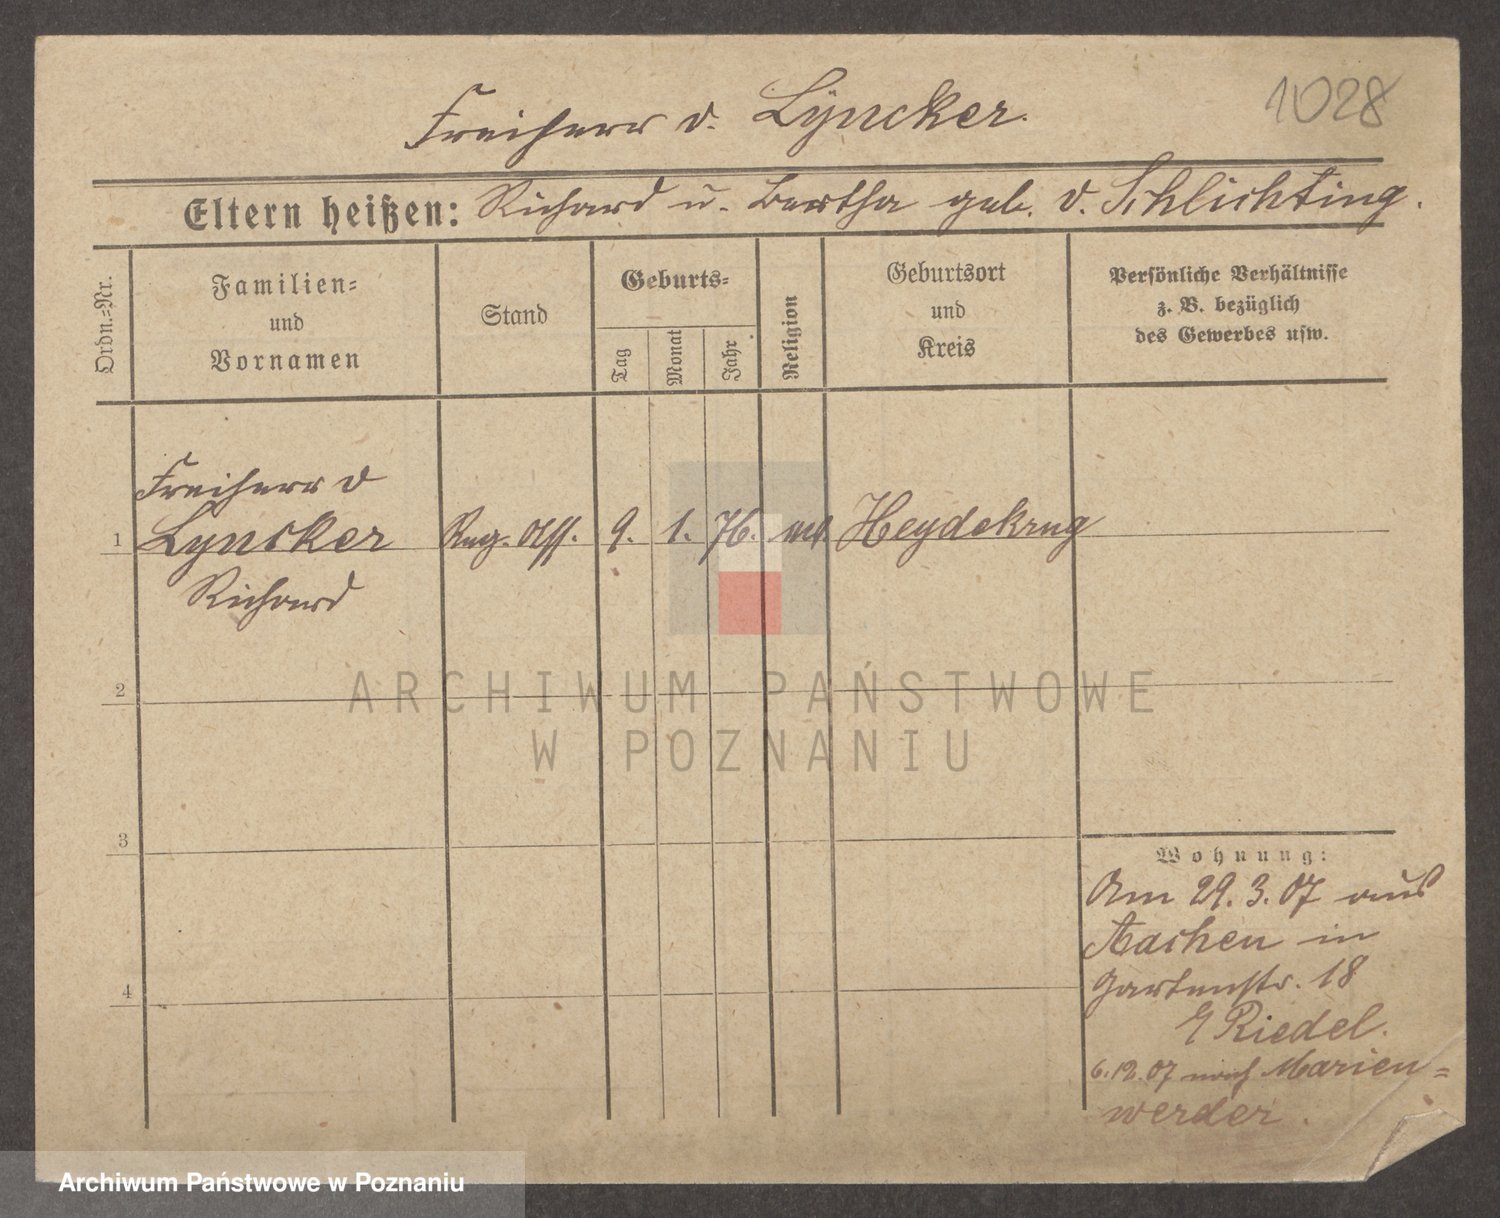 1028
Freiherr v. Lÿncker.
Eltern heißen: Richard u. Bertha geb. v. Schlichting.
Ordn.-Nr.
Familien-
und
Vornamen
Stand
Geburts-
Tag
Monat
Jahr
Religion
Geburtsort
und
Kreis
Persönliche Verhältnisse
z. B. bezüglich
des Gewerbes usw.
Freiherr v
1 Lyncker Reg. Ass. 9. 1. 76. ev. Heydekrug
Richard
2
3
4
Wohnung:
Am 29. 3. 07 aus
Aachen in
Gartenstr. 18
Riedel.
6.12.07 nach Marien=
werder.
ARCHIWUM PAŃSTWOWE
W POZNANIU
Archiwum Państwowe w Poznaniu